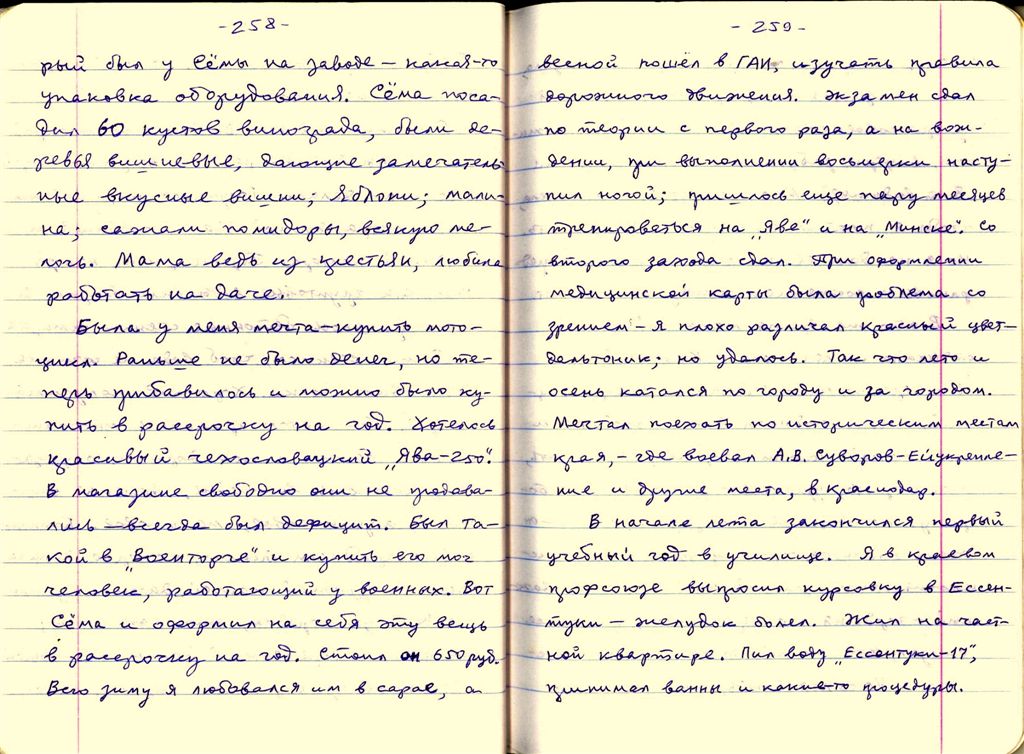 - 258 -
рый был у Сёмы на заводе – какая-то
упаковка оборудования. Сёма поса-
дил 60 кустов винограда, были де-
ревья вишневые, дающие замечатель-
ные вкусные вишни; яблони; мали-
на; сажали помидоры, всякую ме-
лочь. Мама ведь из крестьян, любила
работать на даче.
Была у меня мечта – купить мото-
цикл. Раньше не было денег, но те-
перь прибавилось и можно было ку-
пить в рассрочку на год. Хотелось
красивый чехословацкий „Ява-250“.
В магазине свободно они не продава-
лись – всегда был дефицит. Был та-
кой в „Военторге“ и купить его мог
человек, работающий у военных. Вот
Сёма и оформил на себя эту вещь
в рассрочку на год. Стоил он 650 руб.
Всю зиму я любовался им в сарае, а
- 259 -
весной пошёл в ГАИ, изучать правила
дорожного движения. Экзамен сдал
по теории с первого раза, а на вож-
дении, при выполнении восьмерки насту-
пил ногой; пришлось еще пару месяцев
тренироваться на „Яве“ и на „Минске“. Со
второго захода сдал. При оформлении
медицинской карты была проблема со
зрением – я плохо различал красный цвет –
дальтоник; но удалось. Так что лето и
осень катался по городу и за городом.
Мечтал поехать по историческим местам
края, – где воевал А.В. Суворов – Ейукрепле-
ние и другие места, в Краснодар.
В начале лета закончился первый
учебный год в училище. Я в краевом
профсоюзе выпросил курсовку в Ессен-
туки – желудок болел. Жил на част-
ной квартире. Пил воду „Ессентуки-17“,
принимал ванны и какие-то процедуры.